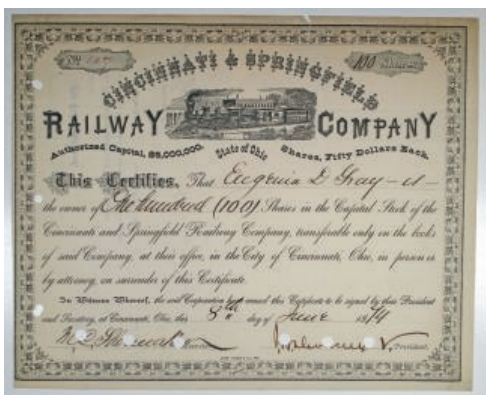 100 Shares
CINCINNATI & SPRINGFIELD
RAILWAY COMPANY
Authorized Capital, $2,000,000. State of Ohio Shares, Fifty Dollars Each.
This Certifies, That Eugenia D Gray - is -
the owner of One Hundred (100) Shares in the Capital Stock of the
Cincinnati and Springfield Railway Company, transferable only on the books
of said Company, at their office, in the City of Cincinnati, Ohio, in person or
by attorney, on surrender of this Certificate.
In Witness Whereof, the said Corporation have caused this Certificate to be signed by their President
and Secretary, at Cincinnati, Ohio, this 8th day of June 1874
President.